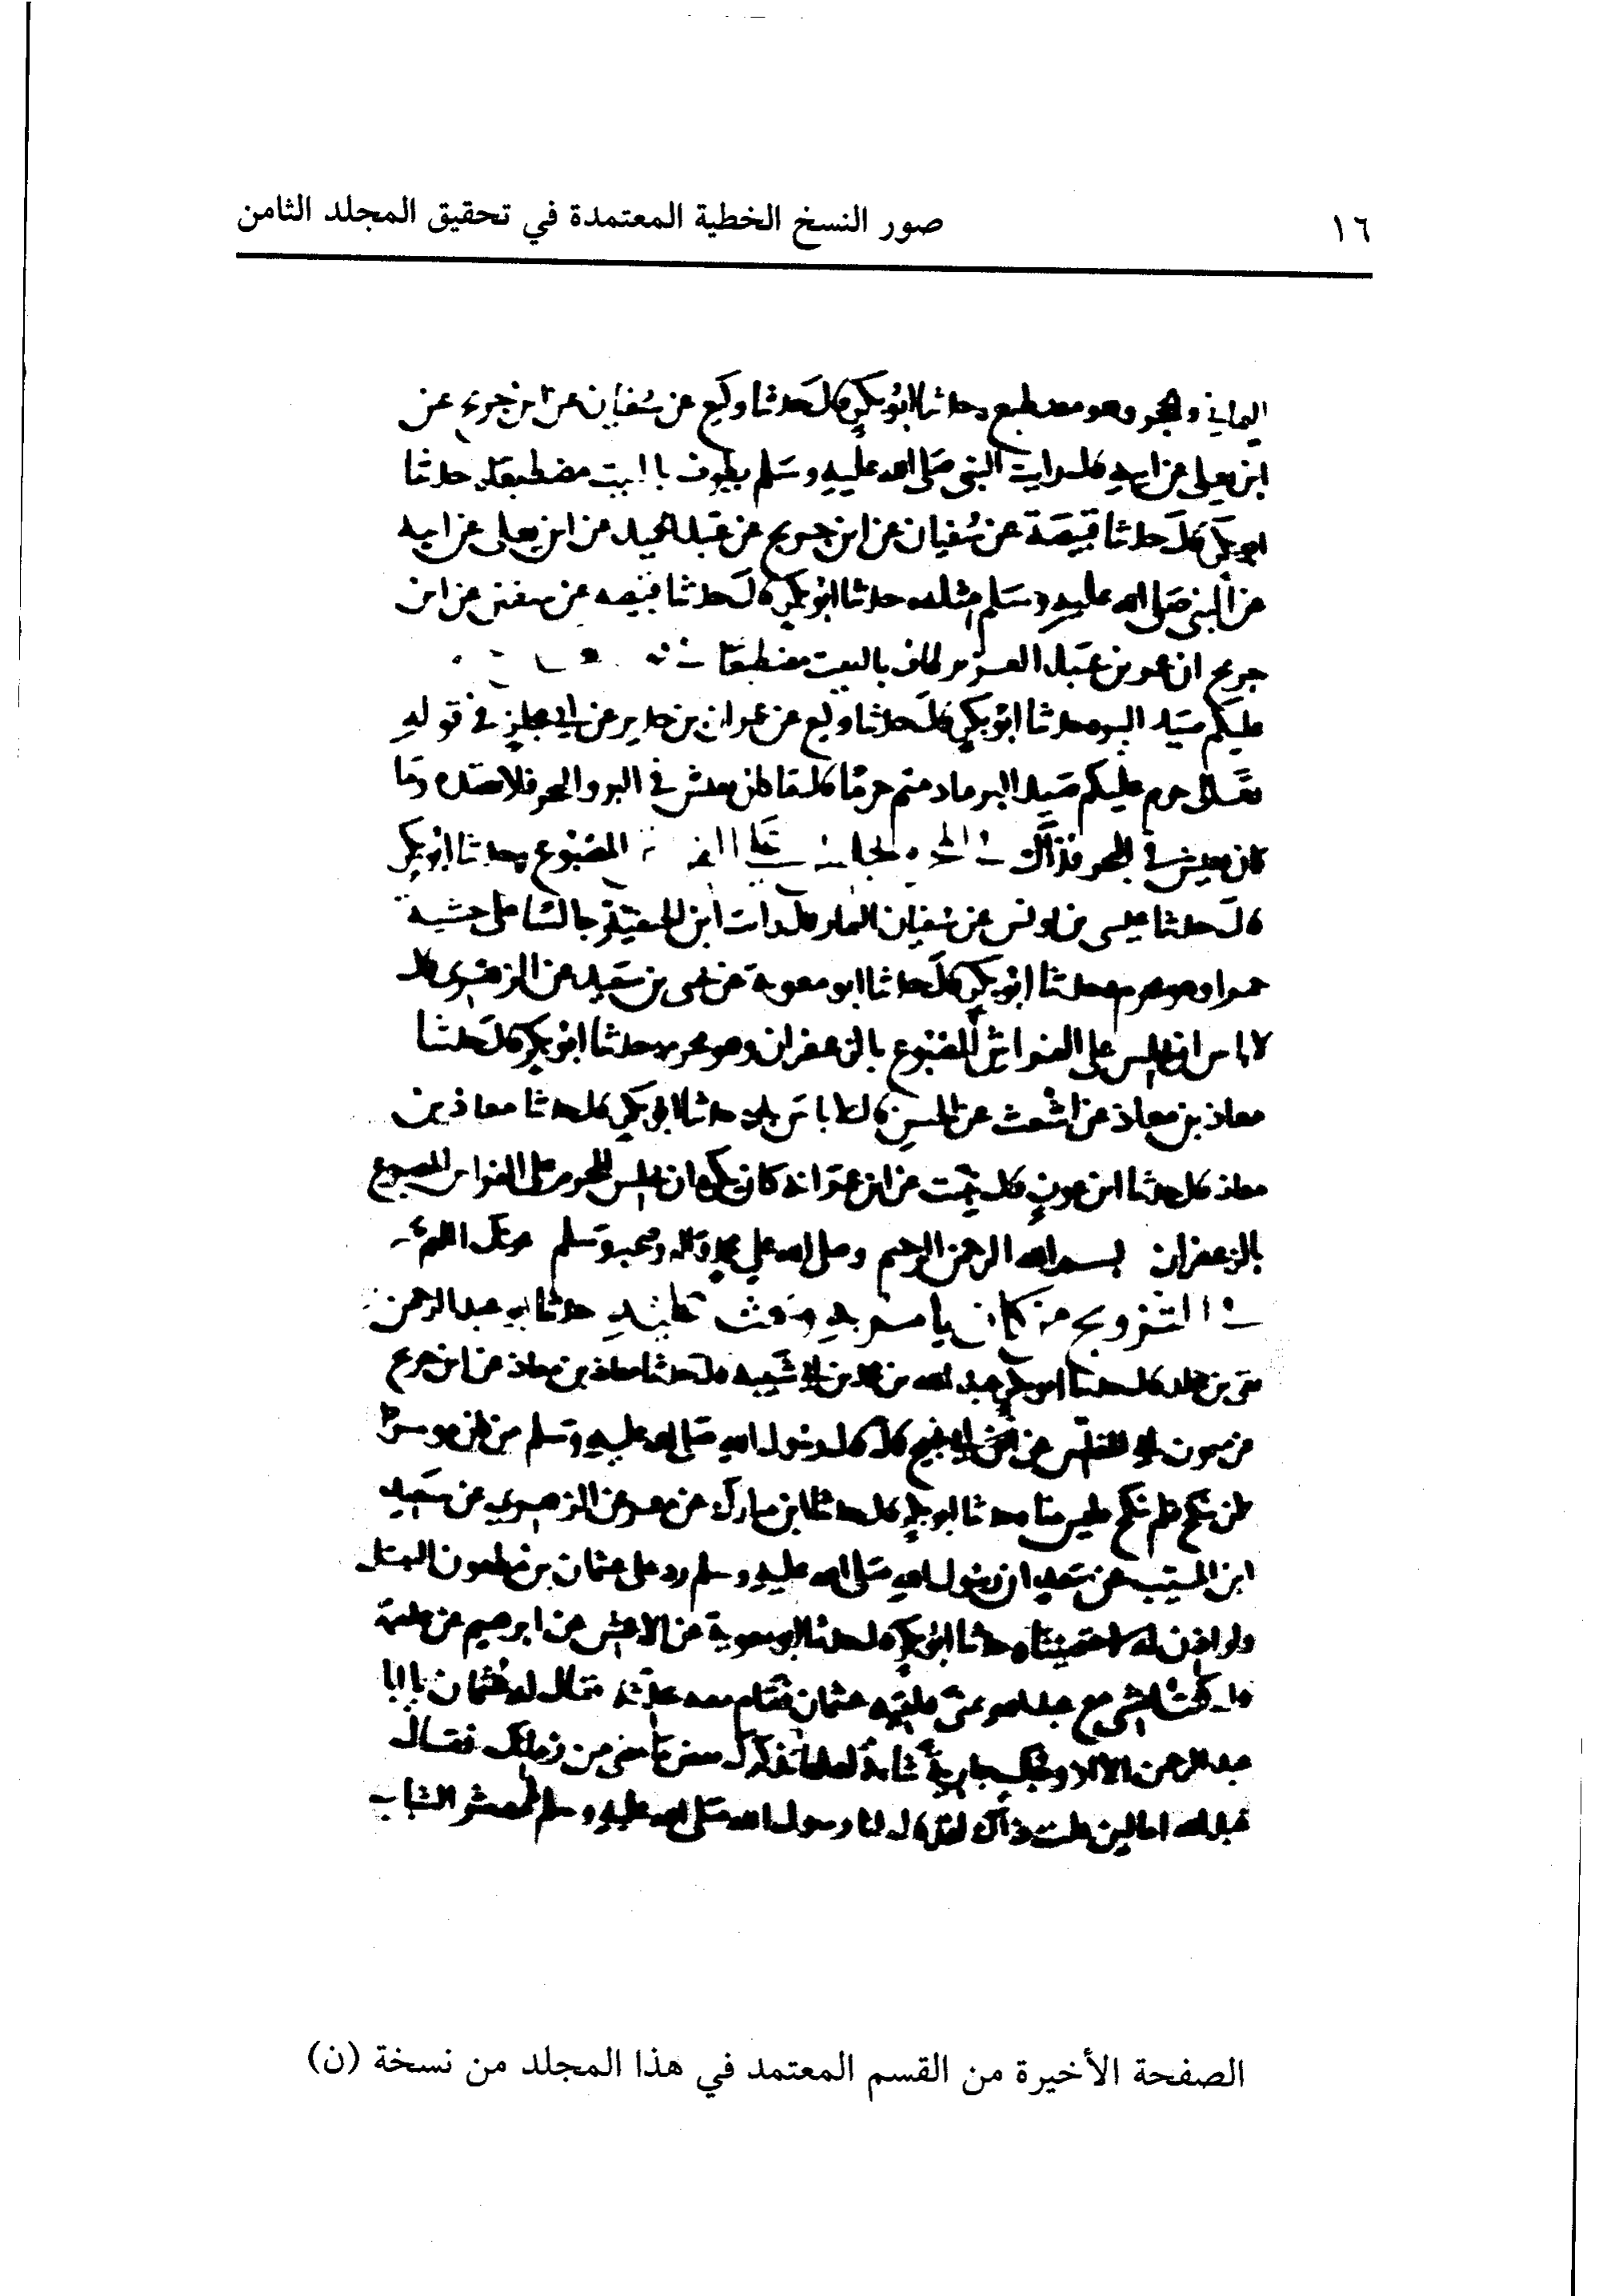 ١٦ صور النسخ الخطية المعتمدة في تحقيق المجلد الثامن
اليماني والحجر وهو مضطبع حدثنا ابو بكر قال حدثنا وكيع عن سفيان عن ابن جريج عن
ابن يعلى عن ابيه قال رايت النبي صلى الله عليه وسلم يطوف بالبيت مضطبعا حدثنا
ابو بكر قال حدثنا قبيصة عن سفيان عن ابن جريج عن عبد الحميد عن ابن يعلى عن ابيه
عن النبي صلى الله عليه وسلم مثله حدثنا ابو بكر قال حدثنا قبيصه عن سفين عن ابن
جريج ان عمر بن عبد العزيز طاف بالبيت مضطبعا
عليكم صيد البر حدثنا ابو بكر قال حدثنا وكيع عن عمران بن حدير عن ابي مجلز في قوله
تعالى حرم عليكم صيد البر ما دمتم حرما قال ما كان يعيش في البر والبحر فلا تصده وما
كان يعيش في البحر فذاك في المحرم يجلس على الفراش المصبوغ حدثنا ابو بكر
قال حدثنا عيسى بن يونس عن سفيان التمار قال رايت ابن الحنفية جالسا على حشية
حمرا وهو محرم حدثنا ابو بكر قال حدثنا ابو معوية عن يحيى بن سعيد عن الزهري قال
لا باس ان يجلس على الفراش المصبوغ بالزعفران وهو محرم حدثنا ابو بكر قال حدثنا
معاذ بن معاذ عن اشعث عن الحسن قال لا باس به حدثنا ابو بكر قال حدثنا معاذ بن
معاذ قال حدثنا ابن عون قال نبئت عن ابن عمر انه كان يكره ان يجلس المحرم على الفراش المصبوغ
بالزعفران بسم الله الرحمن الرحيم وصلى الله على محمد واله وصحبه وسلم عونك اللهم
في التزويج من كان يامر به ويحث عليه حدثنا ابو عبد الرحمن
بقي بن مخلد قال حدثنا ابو بكر عبد الله بن محمد بن ابي شيبه قال حدثنا معاذ بن معاذ عن ابن جريج
عن ميمون ابي المغلس عن ابي نجيح قال قال رسول الله صلى الله عليه وسلم من كان موسرا
لان ينكح فلم ينكح فليس منا حدثنا ابو بكر قال حدثنا ابن مبارك عن معمر عن الزهري عن سعيد
ابن المسيب عن سعد ان رسول الله صلى الله عليه وسلم رد على عثمان بن مظعون التبتل
ولو اذن له لاختصينا حدثنا ابو بكر قال حدثنا ابو معوية عن الاعمش عن ابرهيم عن علقمة
قال كنت امشي مع عبد الله بمنى فلقيه عثمان فقام معه يحدثه فقال له عثمان يا ابا
عبد الرحمن الا ازوجك جارية شابة لعلها تذكرك بعض ما مضى من زمانك فقال
عبد الله اما لين قلت ذاك لقد قال لنا رسول الله صلى الله عليه وسلم يا معشر الشباب
الصفحة الأخيرة من القسم المعتمد في هذا المجلد من نسخة (ن)